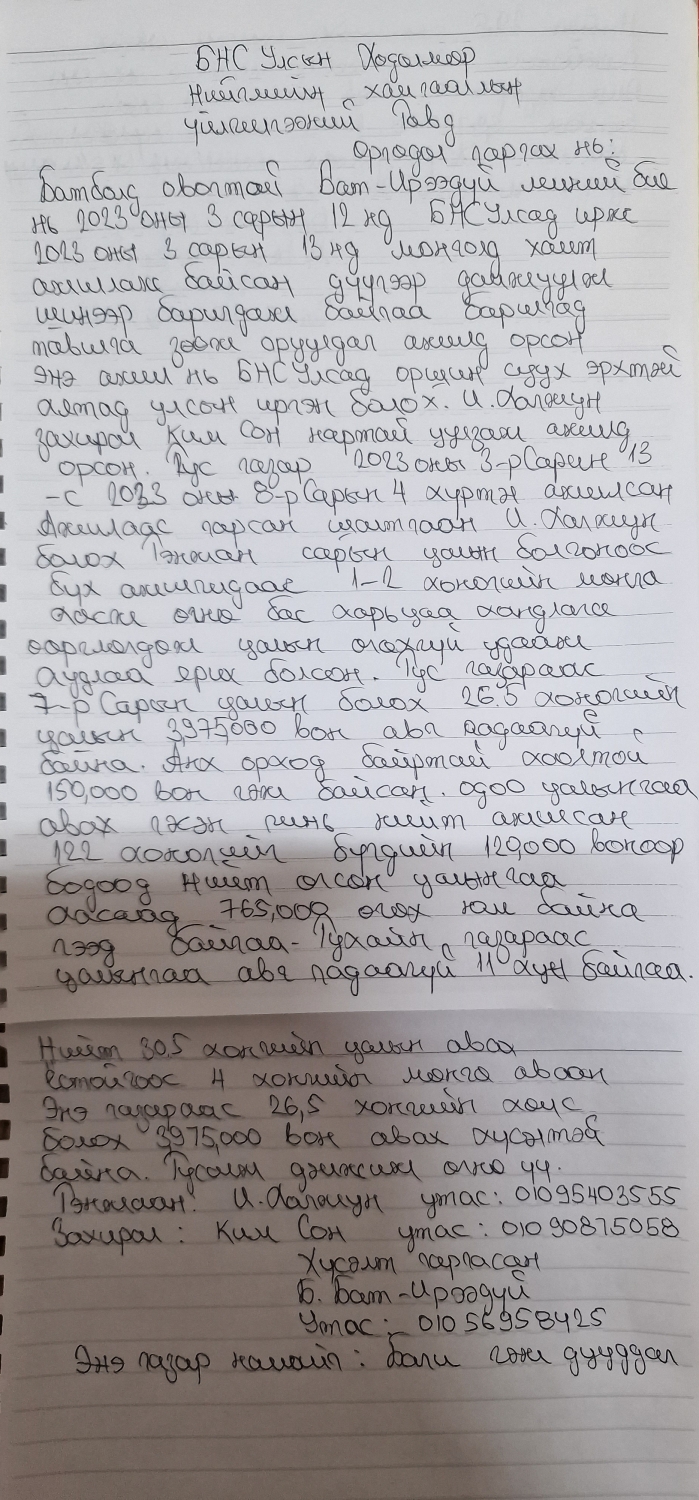 БНС Улсын Ходолмор
Нийгмийн хамгааллын
үйлчилгээний Төвд
Оргодол гаргах нь:
Батболд овогтой Бат-Ирээдүй миний бие
нь 2023 оны 3 сарын 12 нд БНСУлсад иржс
2023 оны 3 сарын 13 нд монголд хамт
ажиллаж байсан дүүгээр дамжуулж
шинээр баригдаж байгаа барилгад
тавилга зөөж оруулдаг ажилд орсон
Энэ ажил нь БНСУлсад оршин суух эрхтэй
алтад улсон иргэн болох. И.Халжүн
захирал Ким Сон нартай уулзаж ажилд
орсон. Тус газар 2023 оны 3-р Сарын 13
-с 2033 оны 8-р Сарын 4 хүртэл ажилсан
Ажилаас гарсан шалтгаан И.Халжүн
болох Тэнжан сарын цалин болгоноос
бух ажилчидаас 1-2 хоногийн монго
хасж огно бас харьцаа хандлага
ооргмолдож цалин огохгуй удааж
аудлаа ярих болсон. Тус газараас
7-р Сарын цалин болох 26.5 хоногийн
цалин 3,975,000 вон авч чадаагүй
байна. Анх ороход байртай хоолтой
150,000 вон гэж байсан. одоо цалингаа
авах гэсэн чинь нийт ажилсан
122 хоногийн бүгдийн 120,000 воноор
бодоод Нийт огсон цалингаа
хасаад 765,000 огох юм байна
гээд байгаа- Тухайн газараас
цалингаа авч чадаагүй 11 хүн байгаа.
Нийт 30,5 хонгийн цалин авах
ёстойгоос 4 хонгийн монго аваан
Энэ газараас 26,5 хонгийн холс
болох 3975,000 вон авах хүсэлтэй
байна. Тусалж дэмжиж огно уу.
Тэнжаан: И.Халжүн утас: 01095403555
Захирал: Ким Сон утас: 01090875058
Хүсэлт гаргасан
Б. Бат-Ирээдүй
Утас: 01056958425
Энэ газар намайг: Бали гэж дууддаг